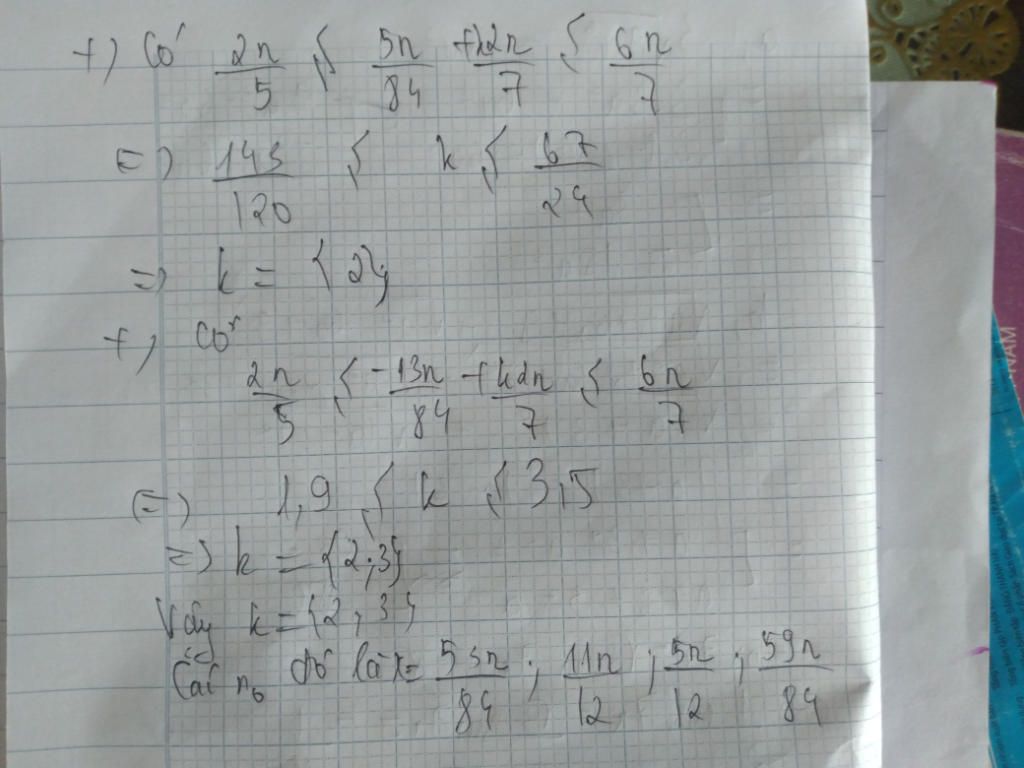 +) Có 2π/5 < 5π/84 + k2π/7 < 6π/7
=) 143/120 < k < 67/24
=) k = {2}
+, Có
2π/5 < -13π/84 + k2π/7 < 6π/7
(=) 1,9 < k < 3,5
=) k = {2;3}
Vậy k = {2;3}
Các no đó là x = 53π/84 ; 11π/12 ; 5π/12 ; 59π/84